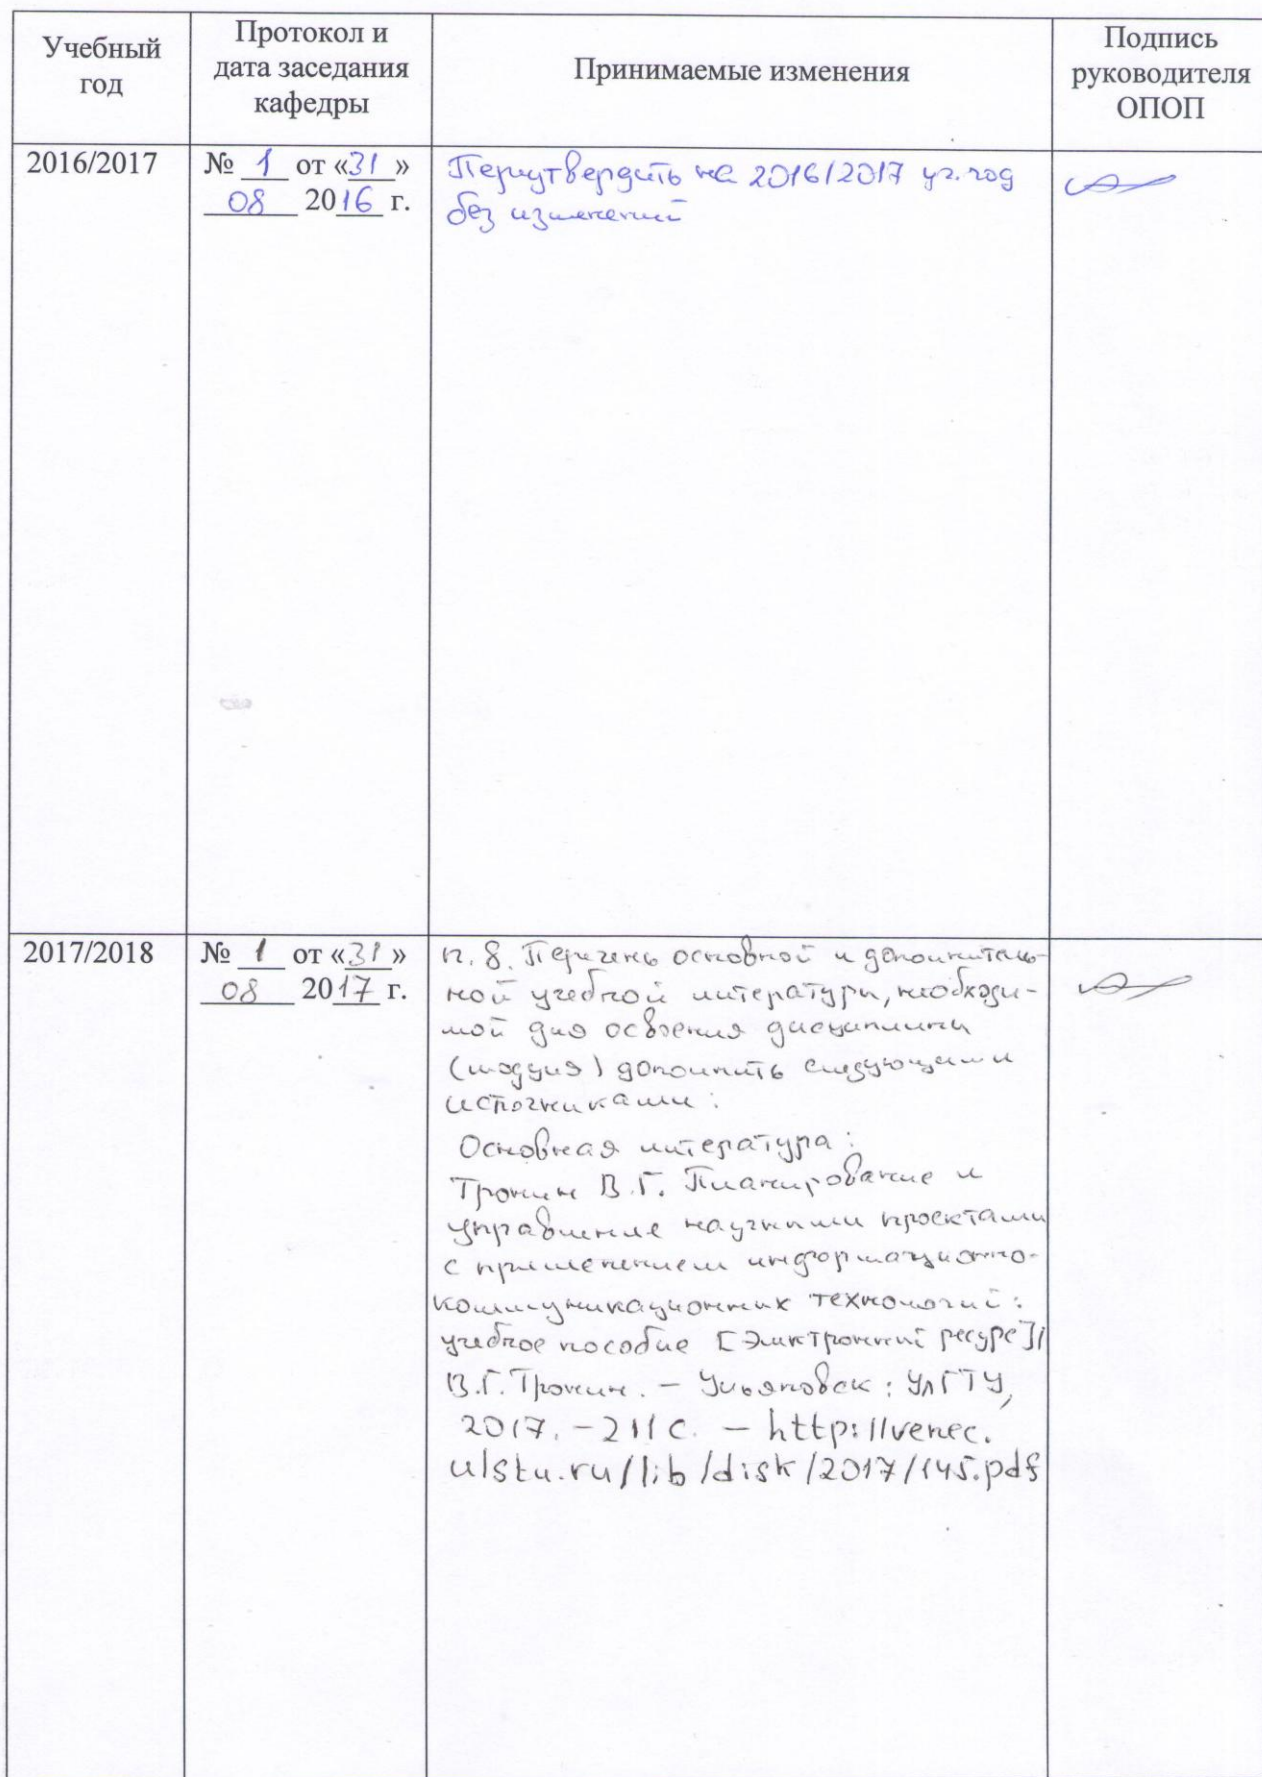 Учебный
год
Протокол и
дата заседания
кафедры
Принимаемые изменения
Подпись
руководителя
ОПОП
2016/2017
№ 1 от «31»
08 2016 г.
Переутвердить на 2016/2017 уч. год
без изменений
2017/2018
№ 1 от «31»
08 2017 г.
п. 8. Перечень основной и дополнитель-
ной учебной литературы, необходи-
мой для освоения дисциплины
(модуля) дополнить следующими
источниками:
Основная литература:
Тронин В.Г. Планирование и
управление научными проектами
с применением информационно-
коммуникационных технологий:
учебное пособие [Электронный ресурс]/
В.Г. Тронин. – Ульяновск: УлГТУ,
2017. – 211 с. – http://venec.
ulstu.ru/lib/disk/2017/145.pdf